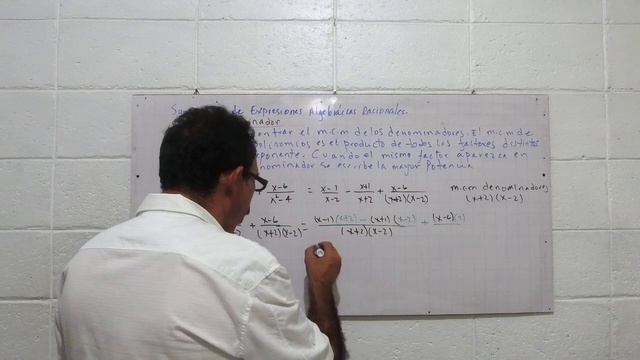 de Expresiones Algebráicas Racionales.
ontrar el m.c.m de los denominadores. El m.c.m de
olinomios es el producto de todos los factores distintos
ponente. Cuando el mismo factor aparezca en
nominador se escribe la mayor potencia
+ x-6/x²-4 = x-1/x-2 - x+1/x+2 + x-6/(x+2)(x-2) m.c.m denominadores
(x+2)(x-2)
+ x-6/(x+2)(x-2) = (x-1)(x+2) - (x+1)(x-2) + (x-6)(1)/(x+2)(x-2)